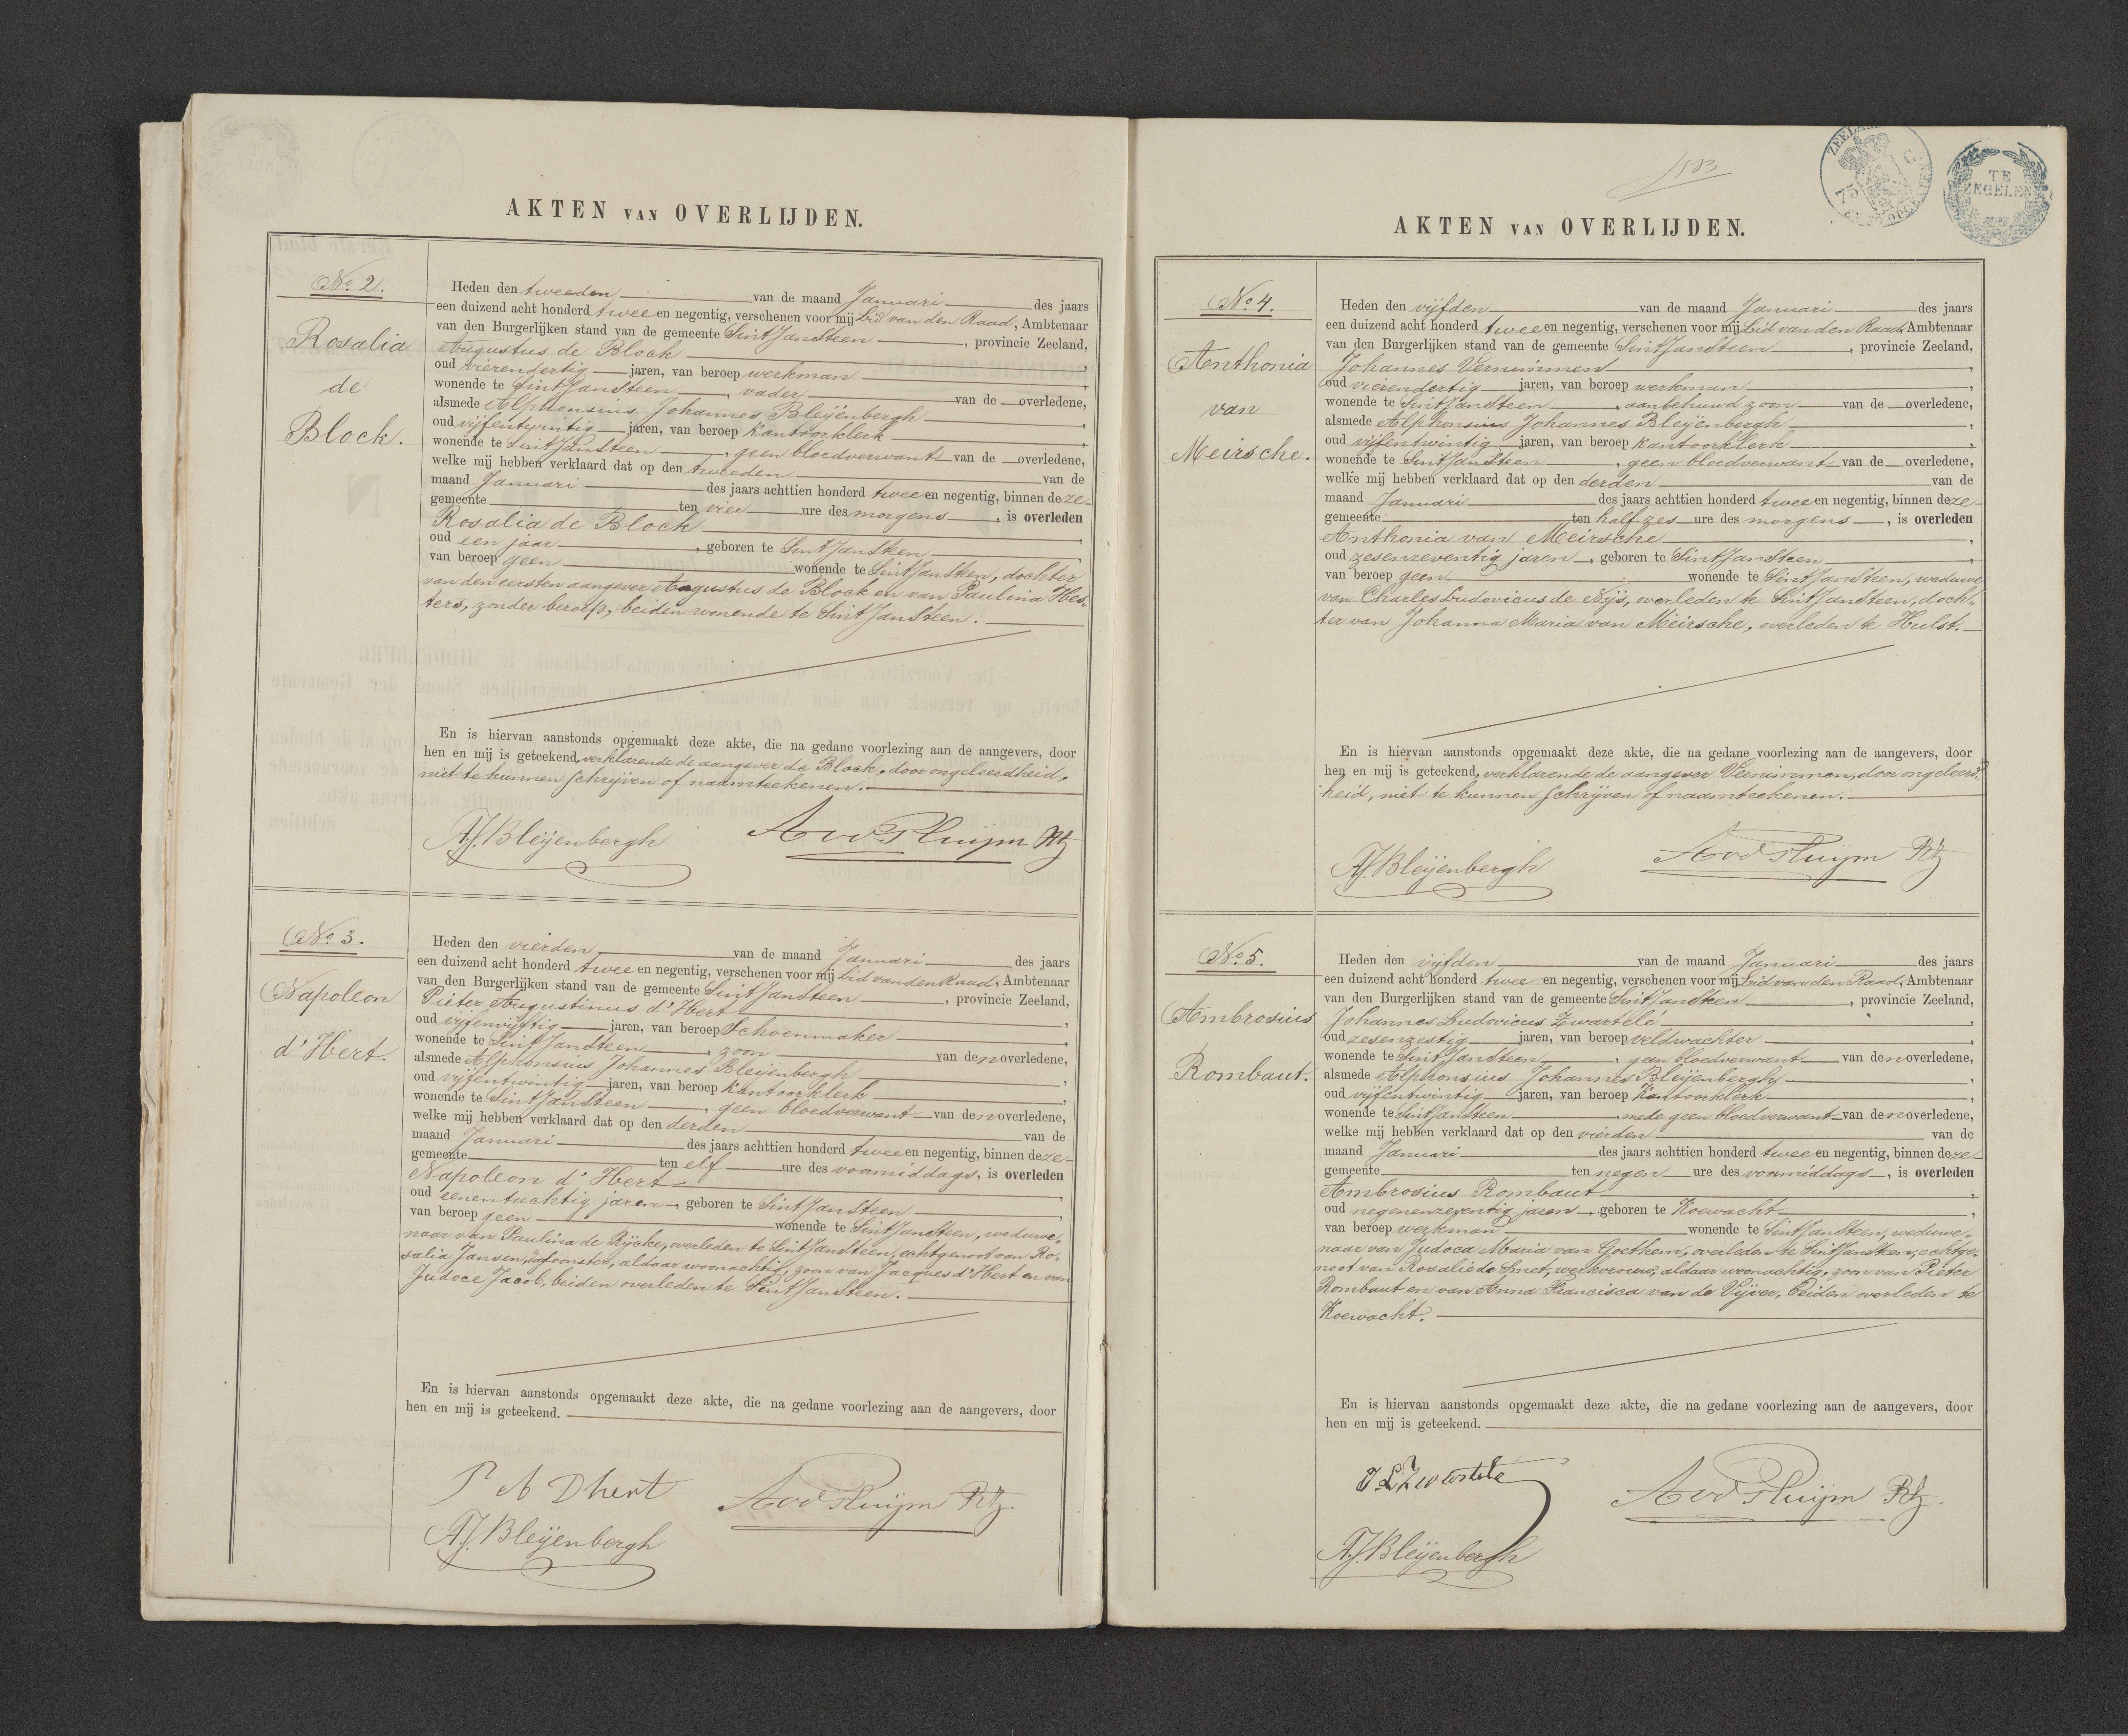 AKTEN VAN OVERLIJDEN.
No 2.
Rosalia
de
Block.
Heden den tweeden van de maand Januari des jaars
een duizend acht honderd twee en negentig, verschenen voor mij Lid van den Raad, Ambtenaar
van den Burgerlijken stand van de gemeente Sint Jansteen, provincie Zeeland,
Augustus de Block
oud vierendertig jaren, van beroep werkman,
wonende te Sint Jansteen, vader van de overledene,
alsmede Alphonsius Johannes Bleijenbergh,
oud vijfentwintig jaren, van beroep Kantoorklerk,
wonende te Sint Jansteen, geen bloedverwant van de overledene,
welke mij hebben verklaard dat op den tweeden van de
maand Januari des jaars achttien honderd twee en negentig, binnen deze
gemeente ten vier ure des morgens, is overleden
Rosalia de Block,
oud een jaar, geboren te Sint Jansteen,
van beroep geen wonende te Sint Jansteen, dochter
van den eersten aangever Augustus de Block en van Paulina Hes-
ters, zonder beroep, beiden wonende te Sint Jansteen.
En is hiervan aanstonds opgemaakt deze akte, die na gedane voorlezing aan de aangevers, door
hen en mij is geteekend, verklarende de aangever de Block, door ongeleerdheid,
niet te kunnen schrijven of naamteekenen.
AJ. Bleijenbergh Avd Pluijm Rtz
No 3.
Napoleon
d' Hert.
Heden den vierden van de maand Januari des jaars
een duizend acht honderd twee en negentig, verschenen voor mij Lid van den Raad, Ambtenaar
van den Burgerlijken stand van de gemeente Sint Jansteen, provincie Zeeland,
Pieter Augustinus d' Hert,
oud vijfenvijftig jaren, van beroep Schoenmaker,
wonende te Sint Jansteen, zoon van den overledene,
alsmede Alphonsius Johannes Bleijenbergh,
oud vijfentwintig jaren, van beroep Kantoorklerk,
wonende te Sint Jansteen, geen bloedverwant van den overledene,
welke mij hebben verklaard dat op den derden van de
maand Januari des jaars achttien honderd twee en negentig, binnen deze
gemeente ten elf ure des voormiddags, is overleden
Napoleon d' Hert,
oud eenentachtig jaren, geboren te Sint Jansteen,
van beroep geen wonende te Sint Jansteen, weduwe-
naar van Paulina de Rijcke, overleden te Sint Jansteen, echtgenoot van Ro-
salia Jansen, aldaar woonachtig, zoon van Jacques d' Hert en van
Judoce Jacob, beiden overleden te Sint Jansteen.
En is hiervan aanstonds opgemaakt deze akte, die na gedane voorlezing aan de aangevers, door
hen en mij is geteekend.
P A Dhert Avd Pluijm Rtz
AJ. Bleijenbergh
ZEELAND
75 C
TE
ZEGELEN
AKTEN VAN OVERLIJDEN.
No 4.
Anthonia
van
Meirsche.
Heden den vijfden van de maand Januari des jaars
een duizend acht honderd twee en negentig, verschenen voor mij Lid van den Raad, Ambtenaar
van den Burgerlijken stand van de gemeente Sint Jansteen, provincie Zeeland,
Johannes Vernimmen,
oud vierendertig jaren, van beroep werkman,
wonende te Sint Jansteen, aanbehuwd zoon van de overledene,
alsmede Alphonsius Johannes Bleijenbergh,
oud vijfentwintig jaren, van beroep Kantoorklerk,
wonende te Sint Jansteen, geen bloedverwant van de overledene,
welke mij hebben verklaard dat op den derden van de
maand Januari des jaars achttien honderd twee en negentig, binnen deze
gemeente ten half zes ure des morgens, is overleden
Anthonia van Meirsche,
oud zesenzeventig jaren, geboren te Sint Jansteen,
van beroep geen wonende te Sint Jansteen, weduwe
van Charles Ludovicus de Nijs, overleden te Sint Jansteen, doch-
ter van Johanna Maria van Meirsche, overleden te Hulst.
En is hiervan aanstonds opgemaakt deze akte, die na gedane voorlezing aan de aangevers, door
hen en mij is geteekend, verklarende de aangever Vernimmen, door ongeleerd-
heid, niet te kunnen schrijven of naamteekenen.
AJ. Bleijenbergh Avd Pluijm Rtz
No 5.
Ambrosius
Rombaut.
Heden den vijfden van de maand Januari des jaars
een duizend acht honderd twee en negentig, verschenen voor mij Lid van den Raad, Ambtenaar
van den Burgerlijken stand van de gemeente Sint Jansteen, provincie Zeeland,
Johannes Ludovicus Zwartelé,
oud zesenzestig jaren, van beroep veldwachter,
wonende te Sint Jansteen, geen bloedverwant van den overledene,
alsmede Alphonsius Johannes Bleijenbergh,
oud vijfentwintig jaren, van beroep Kantoorklerk,
wonende te Sint Jansteen, mede geen bloedverwant van den overledene,
welke mij hebben verklaard dat op den vierden van de
maand Januari des jaars achttien honderd twee en negentig, binnen deze
gemeente ten negen ure des voormiddags, is overleden
Ambrosius Rombaut,
oud negenenzeventig jaren, geboren te Koewacht,
van beroep werkman wonende te Sint Jansteen, weduwe-
naar van Judoca Maria van Goethem, overleden te Sint Jansteen, echtge-
noot van Rosalie de Smet, werkvrouw, aldaar woonachtig, zoon van Pieter
Rombaut en van Anna Francisca van de Vijver, beiden overleden te
Koewacht.
En is hiervan aanstonds opgemaakt deze akte, die na gedane voorlezing aan de aangevers, door
hen en mij is geteekend.
J L Zwartelé Avd Pluijm Rtz.
AJ. Bleijenbergh